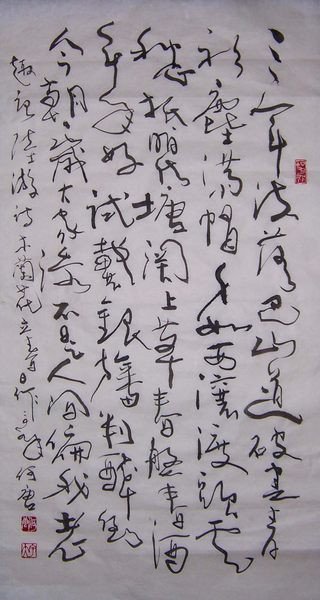 三年流落巴山道破尽青
衫塵满帽身如西瀼渡头云
愁抵瞿塘関上草春盤春酒
年年好試戴銀旛判醉倒
今朝一歲大家添不是人间偏我老
陆游诗木蘭花立春日作